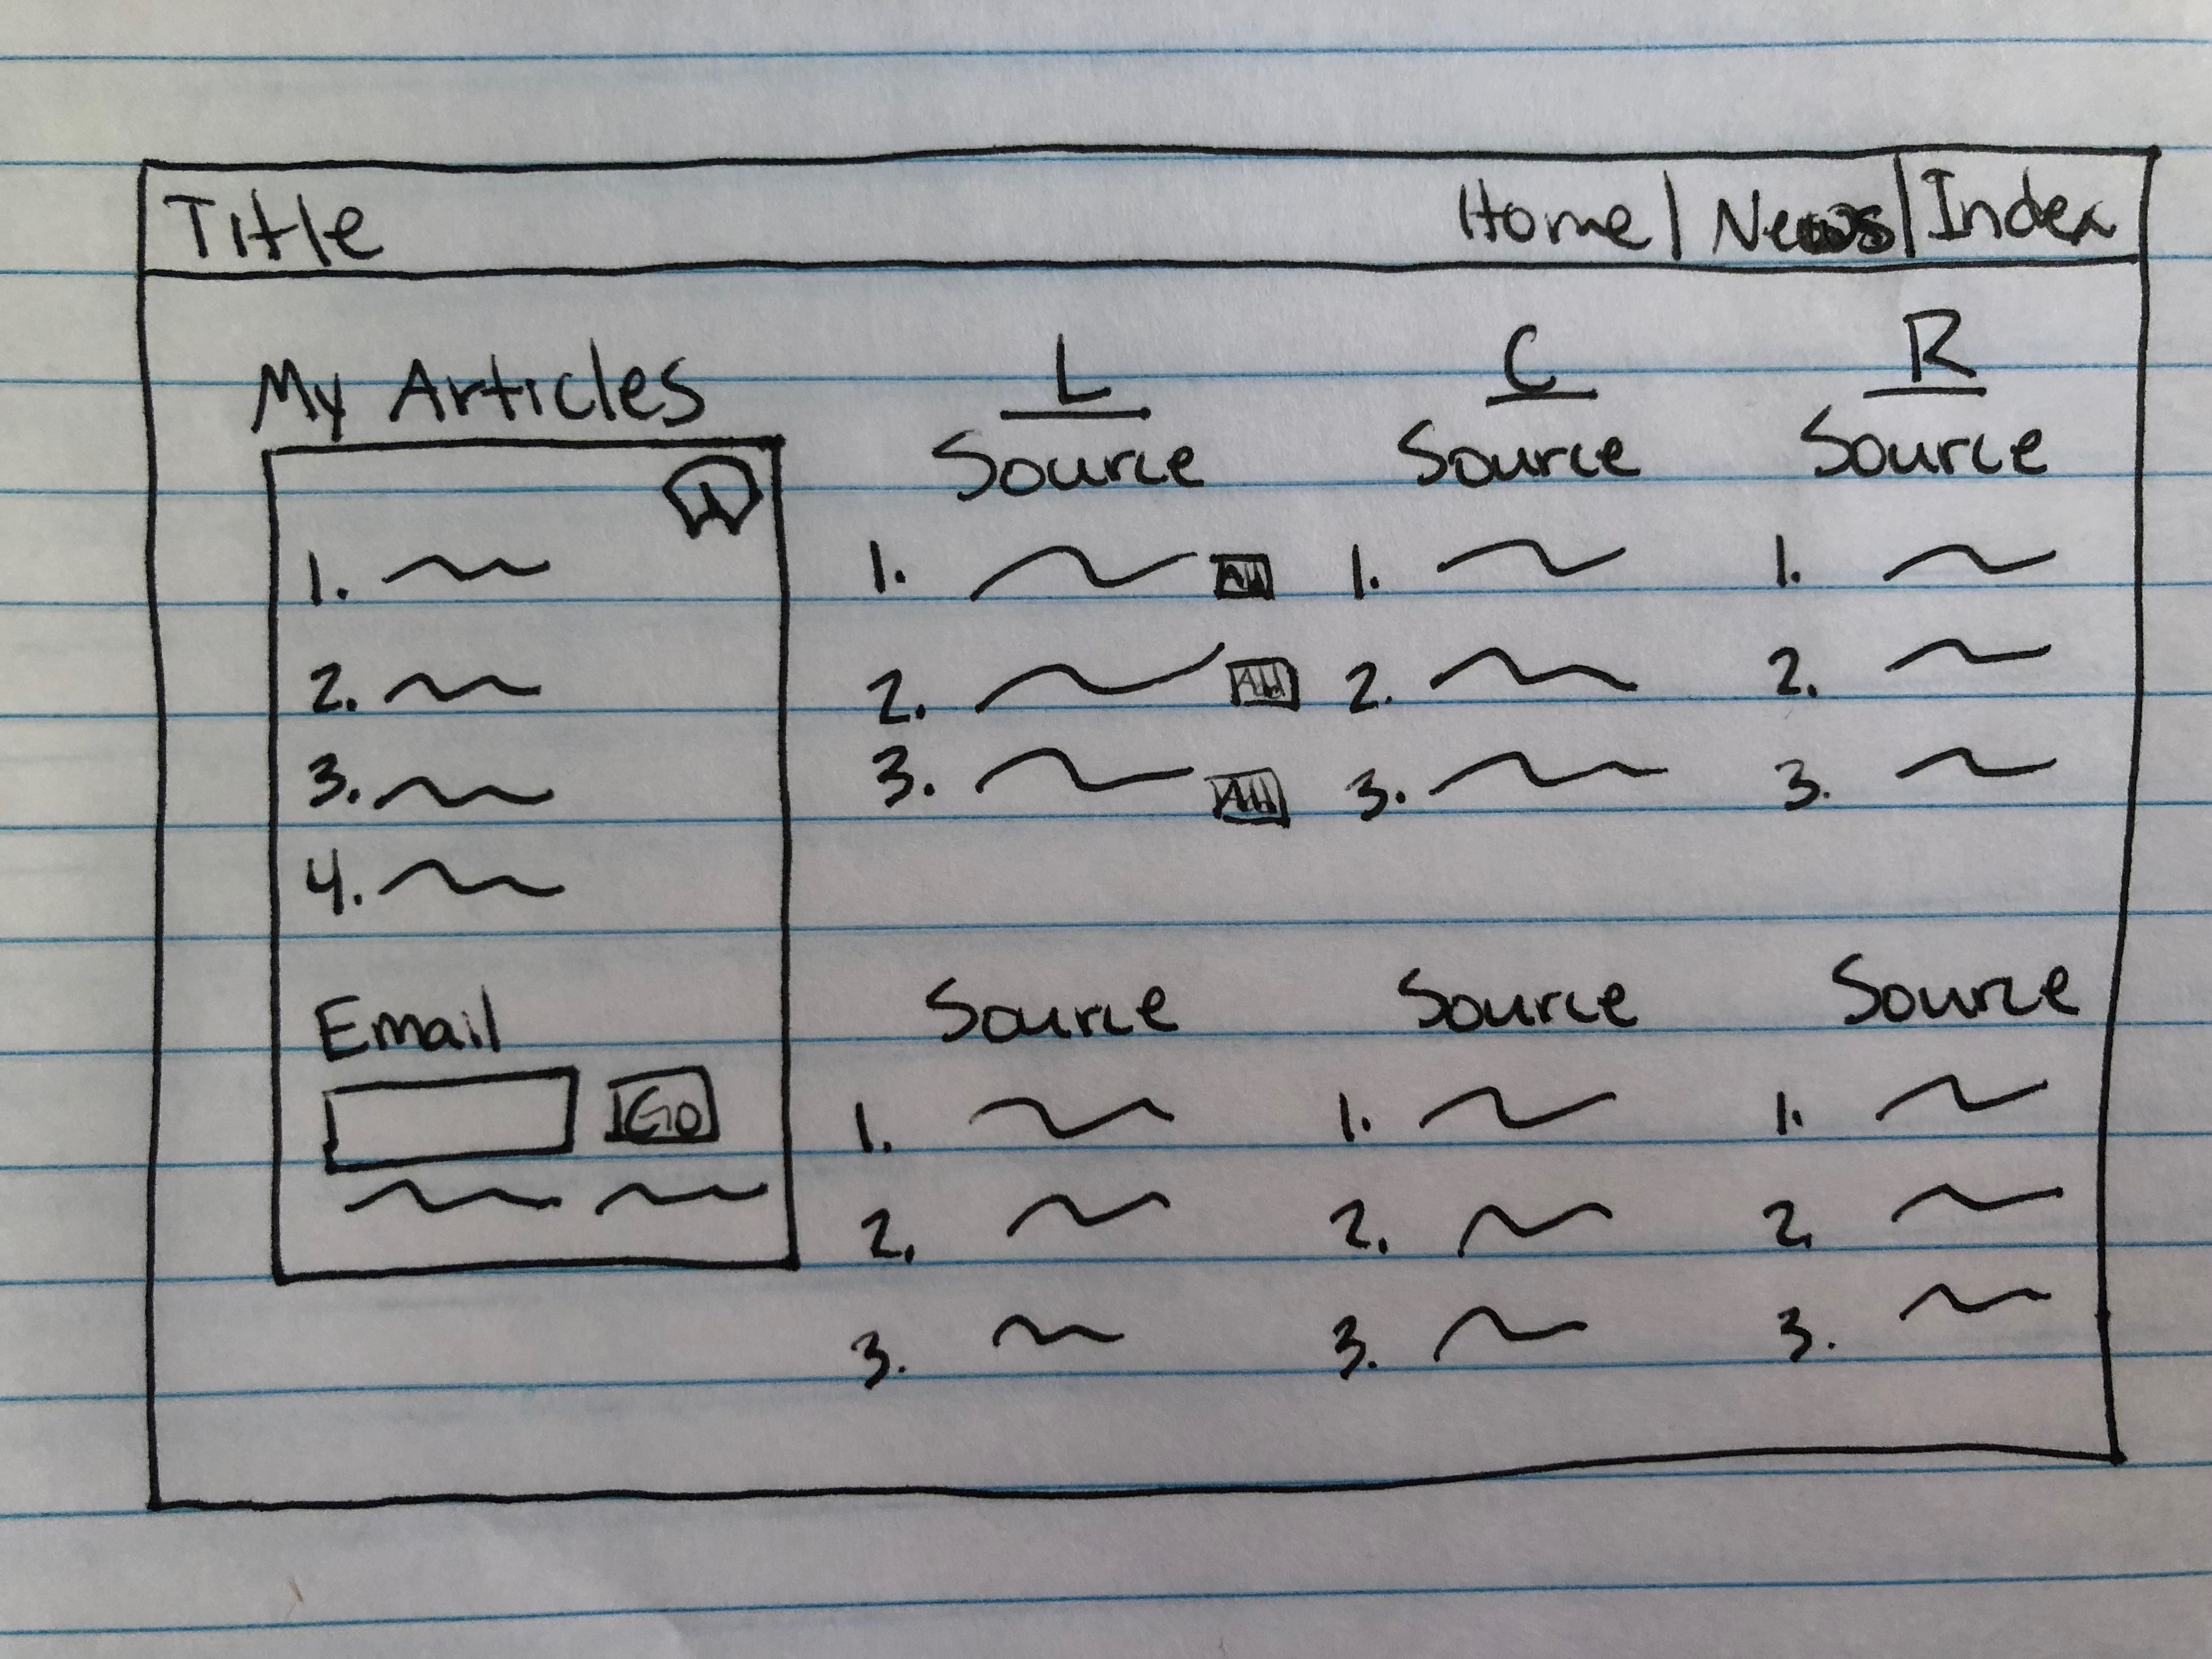 Title
Home | News | Index
My Articles
1.
2.
3.
4.
Email
Go
L
Source
1.
2.
3.
Source
1.
2.
3.
C
Source
1.
2.
3.
Source
1.
2.
3.
R
Source
1.
2.
3.
Source
1.
2.
3.